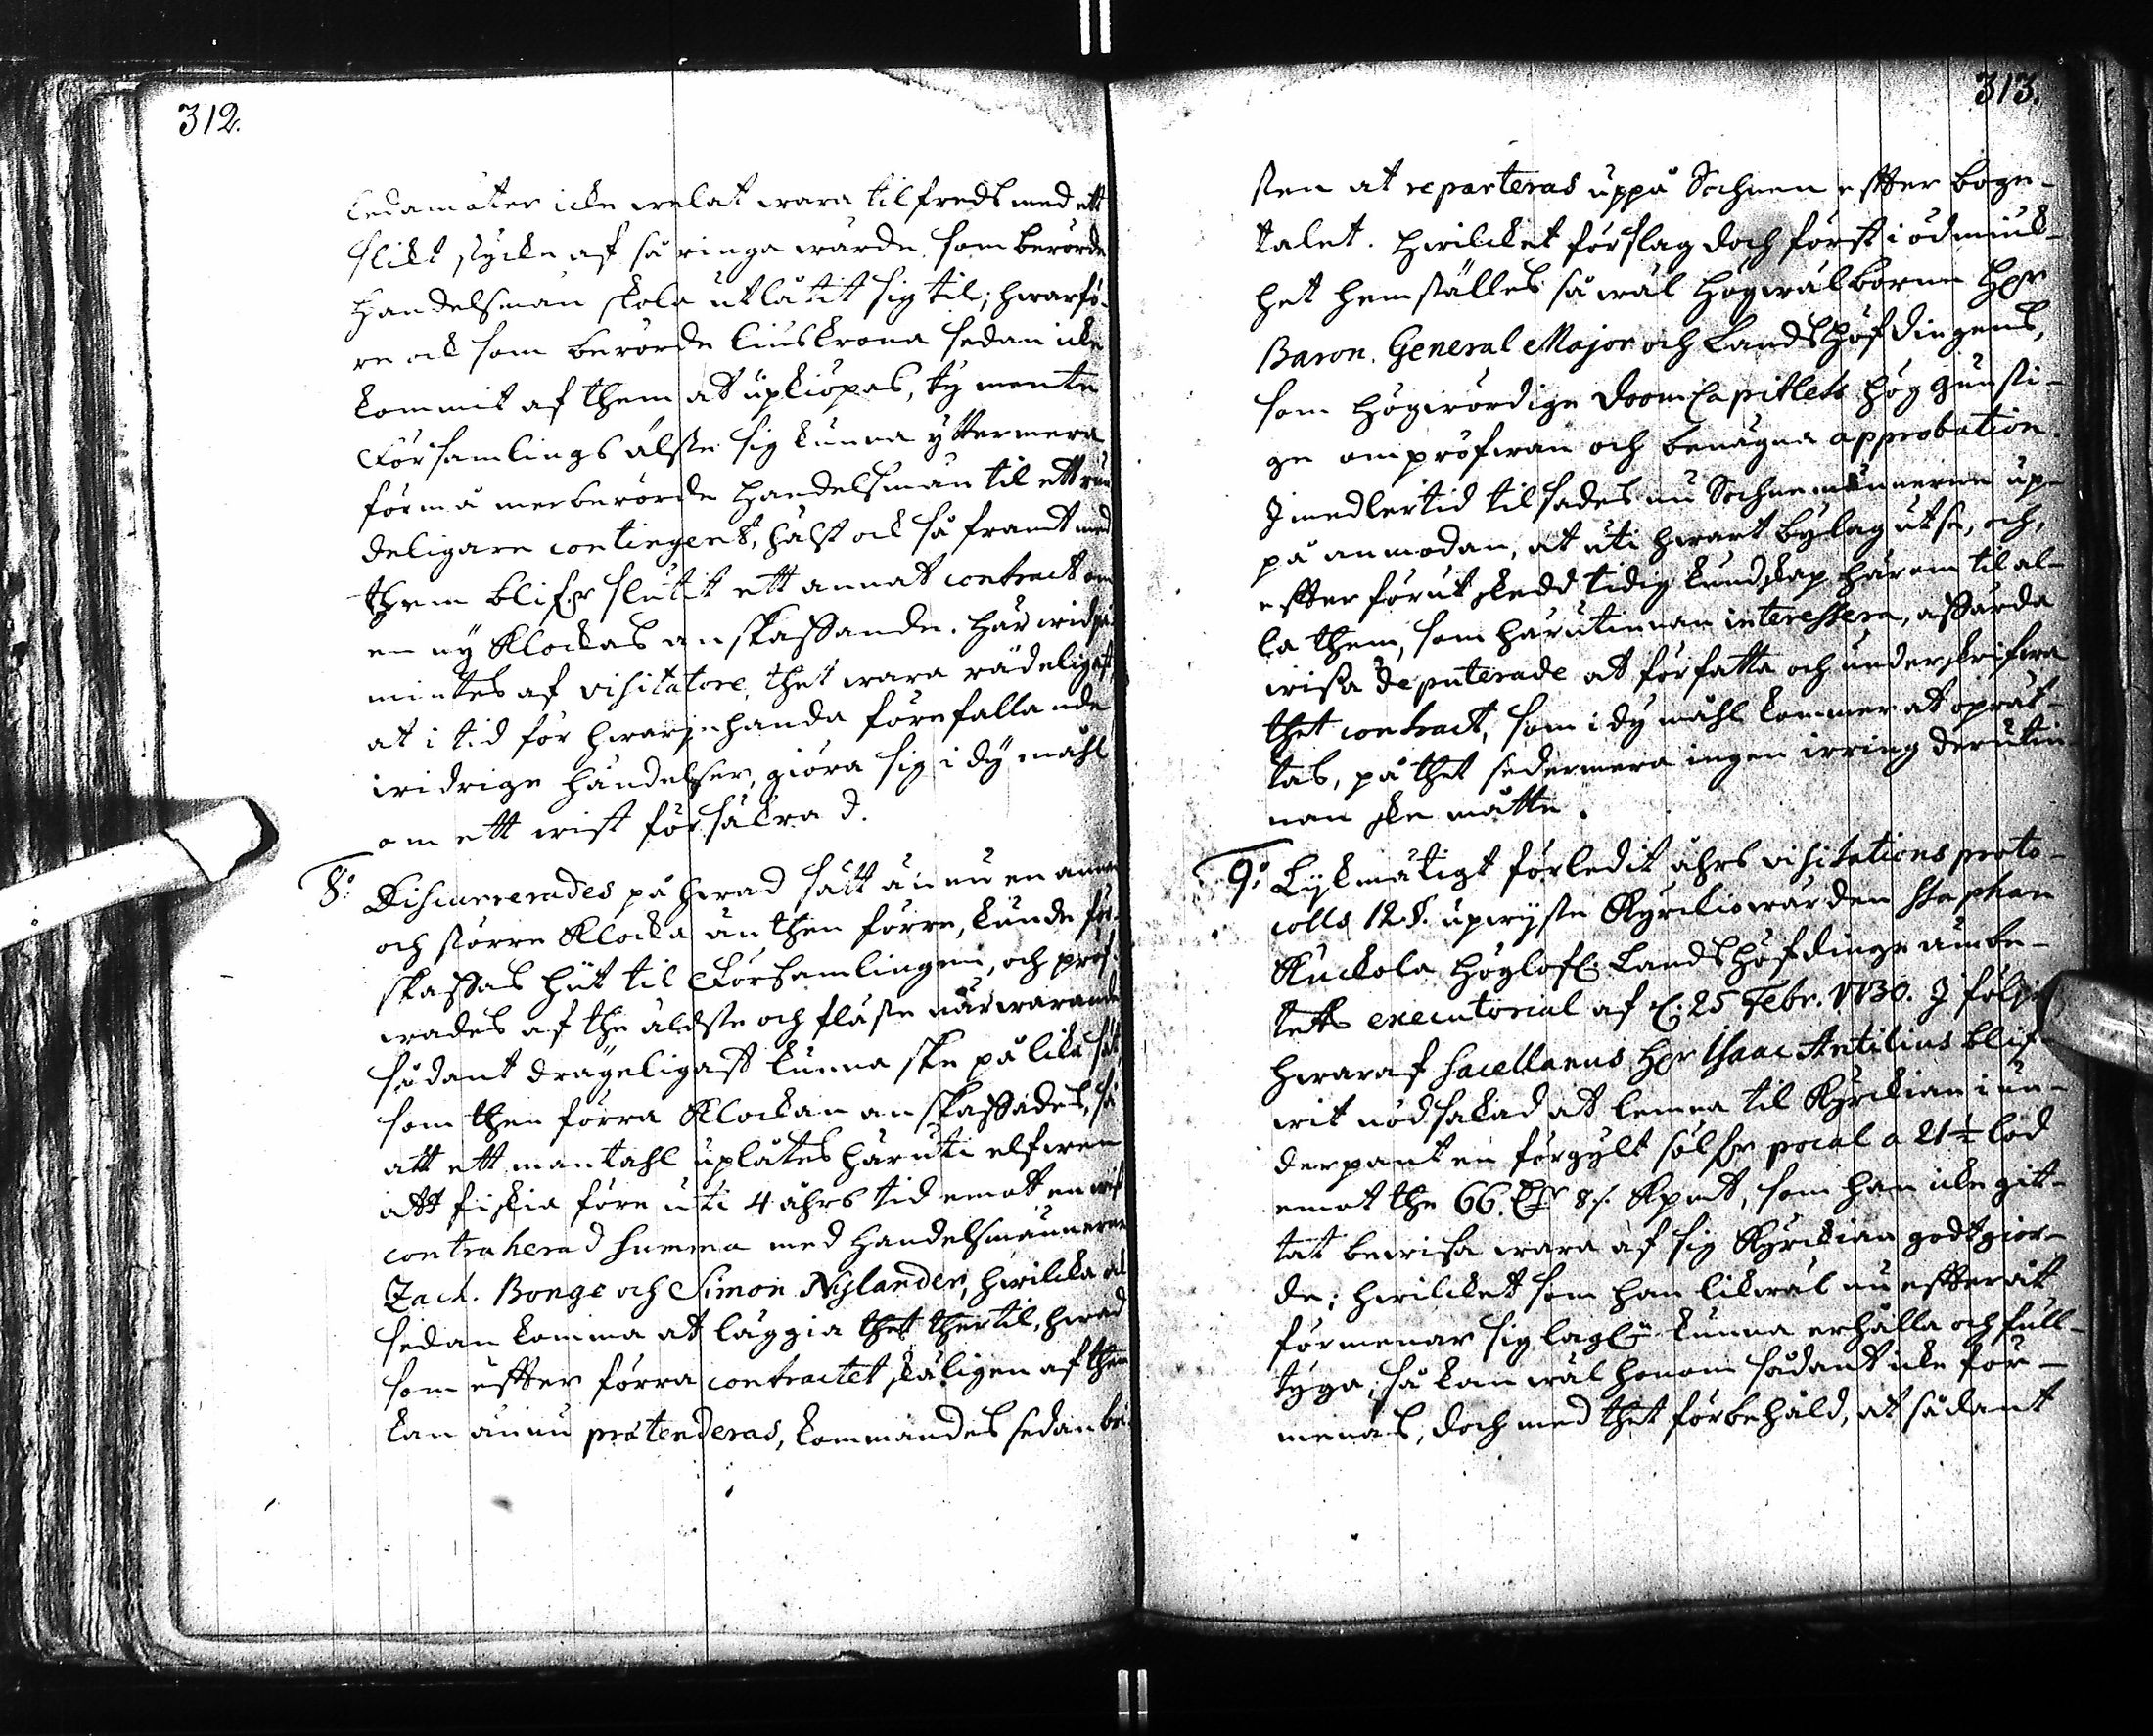 312.
Ledamöter icke welat wara tilfreds med ett
slikt stycke af så ringa wärde som berörde
Handelsman skola utlåtit sig til; hwarfö-
re ock som berörde liuskrona sedan icke
kommit af them at upkiöpas, ty mente
Församlings älste sig kunna yttermera
förmå merberörde Handelsman til ett
deligare contingent, hälst ock så framt med
them blifer slutit ett annat contract om
en ny Klockas anskaffande. Här wid på-
mintes af visitatore, thet wara rådeligast,
at i tid för hwarjehanda förefallande
widrige händelser, giöra sig i dy måhl
om ett wist försäkrad.
8: Discurrerades på hwad sätt ännu en annan
och större Klocka än then förre, kunde
skaffas hüt til Församlingen, och pröf-
wades af the äldste och flaste närwarande
sådant drägeligast kunna ske på lika sätt
som then förra Klockan anskaffades, så
att ett mantahl uplåtes här uti elfwen
att fiskia före uti 4 åhrs tid emot en wiss
contraherad summa med Handelsmännerne
Zach. Bonge och Simon Nylander, hwilcka ock
sedan komma at läggia thet thertil, hwad
som effter förra contractet skäligen af them
kan ännu prætenderas, kommandes sedan
313.
sten at reparteras uppå Sochnen effter böge-
talet. Hwilcket förslag doch först i ödmiuk-
het hemställes så wäl Högwälborne Her
Baron. General Major och Landshöfdingens,
som Högwördige DoomCapitlets hög gunsti-
ge ompröfwan och benägna approbation.
Imedlertid tilsades nu Sochnemännerne up-
på anmodan, at uti hwart bylag utse, och,
effter förut skedd tidig kundskap härom til al-
la them, som härutinnan interessera, affärda
wissa deputerade at författa och underskrifwa
thet contract, som i dy måhl kommer at oprät-
tas, på thet sedermera ingen irring derutin-
nan ske måtte.
9: Lijkmätigt förledit åhrs visitations proto-
colls 12 §. upwijste Kyrckiowärden Staphan
Kuckola Höglofl. Landshöfdinge ämbe-
tetts executorial af d: 25 Febr. 1730. I följe
hwaraf Sacellanus Her Isaac Antilius blif-
wit nödsakad at lemna til Kyrckian i un-
derpant en förgylt sölfwer pocal a 21 ½ lod
emot the 66. dlr 8/. Kpmt, som han icke git-
tat bewisa wara af sig Kyrckian godtgior-
de; hwilcket som han likwäl nu effteråt
förmenar sig lagl: kunna erhålla och full-
tyga; så kan wäl honom sådant icke för-
menas, doch med thet förbehåld, at sådant